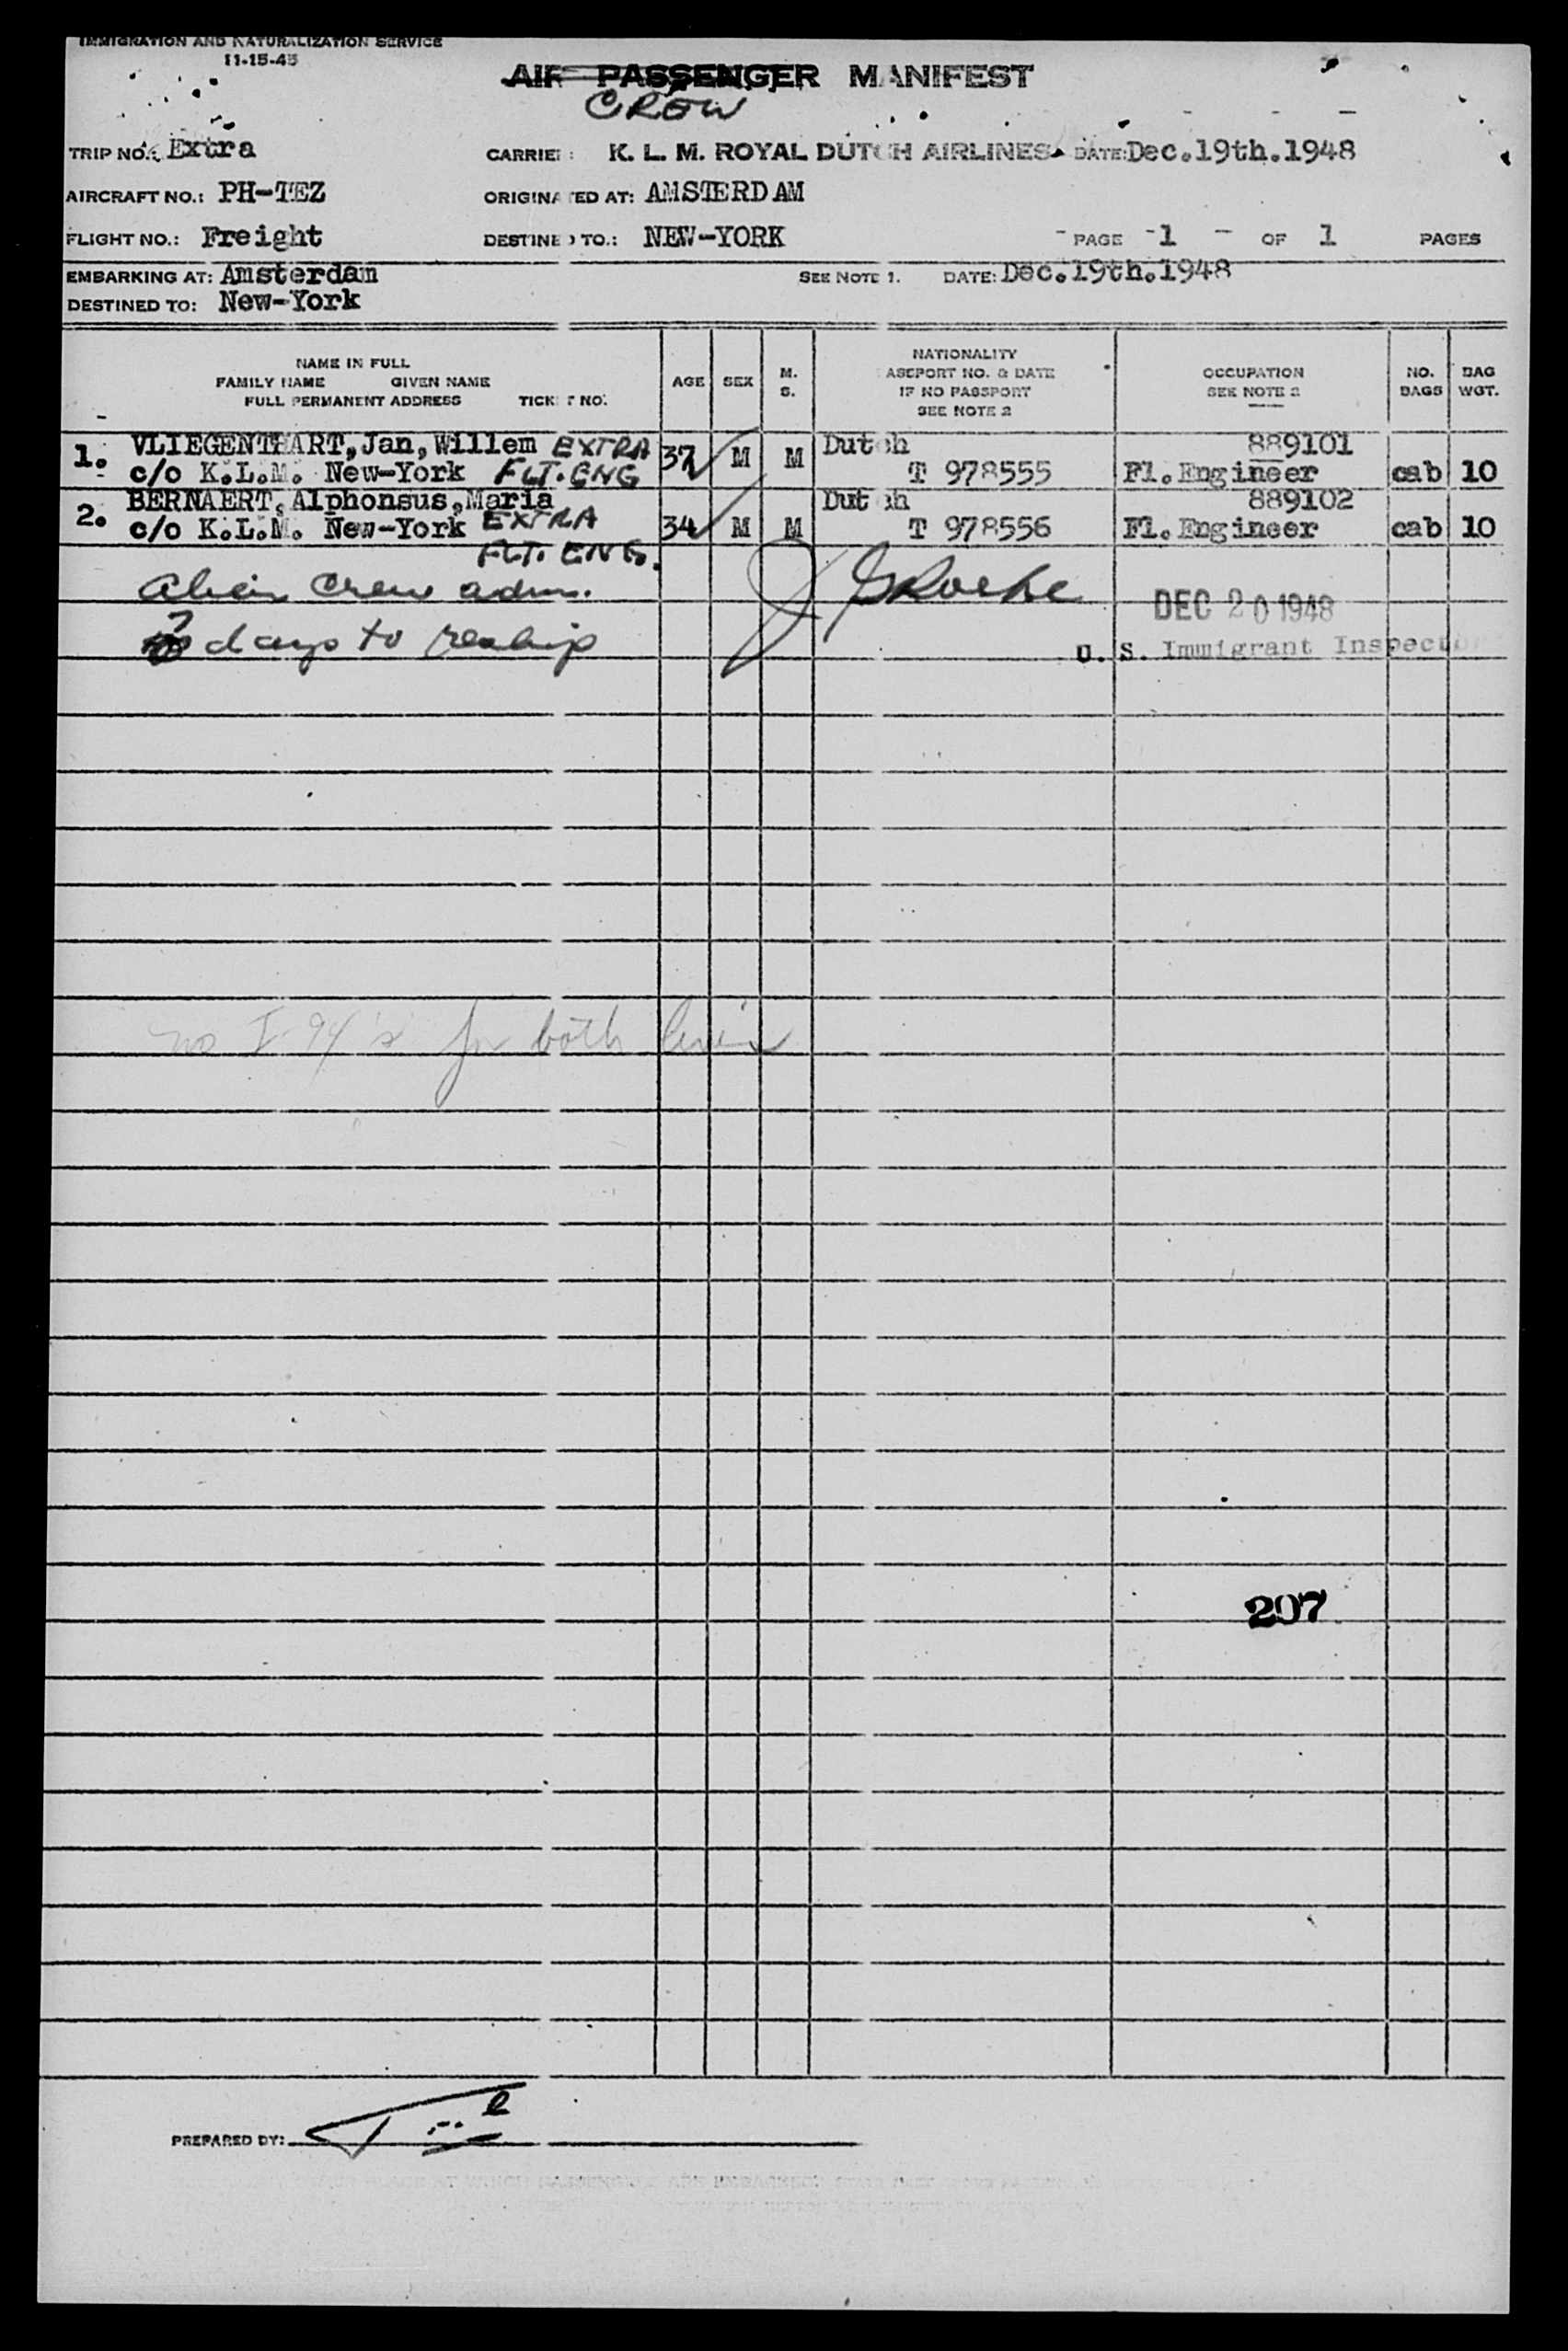 IMMIGRATION AND NATURALIZATION SERVICE
11-15-45
AIR PASSENGER MANIFEST
CREW
TRIP NO.: Extra CARRIER: K. L. M. ROYAL DUTCH AIRLINES DATE: Dec.19th.1948
AIRCRAFT NO.: PH-TEZ ORIGINATED AT: AMSTERDAM
FLIGHT NO.: Freight DESTINED TO.: NEW-YORK PAGE -1 - OF 1 PAGES
EMBARKING AT: Amsterdam SEE NOTE 1. DATE: Dec.19th.1948
DESTINED TO: New-York
NAME IN FULL
FAMILY NAME GIVEN NAME
FULL PERMANENT ADDRESS TICKET NO.
AGE
SEX
M.
S.
NATIONALITY
PASSPORT NO. & DATE
IF NO PASSPORT
SEE NOTE 2
OCCUPATION
SEE NOTE 2
NO.
BAGS
BAG
WGT.
1. VLIEGENTHART, Jan, Willem EXTRA 37 M M Dutch 889101
c/o K.L.M. New-York FLT. ENG T 978555 Fl. Engineer cab 10
2. BERNAERT, Alphonsus, Maria Dutch 889102
c/o K.L.M. New-York EXTRA 34 M M T 978556 Fl. Engineer cab 10
FLT. ENG.
Alien Crew adm.
days to reship
DEC 20 1948
U. S. Immigrant Inspector
no I-94's for both
207
PREPARED BY: